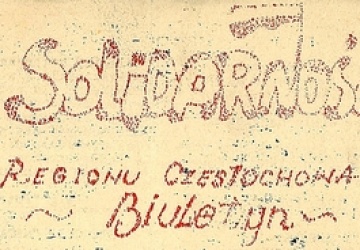 SOLIDARNOŚ
REGIONU CZESTOCHOWA
~ Biuletyn ~